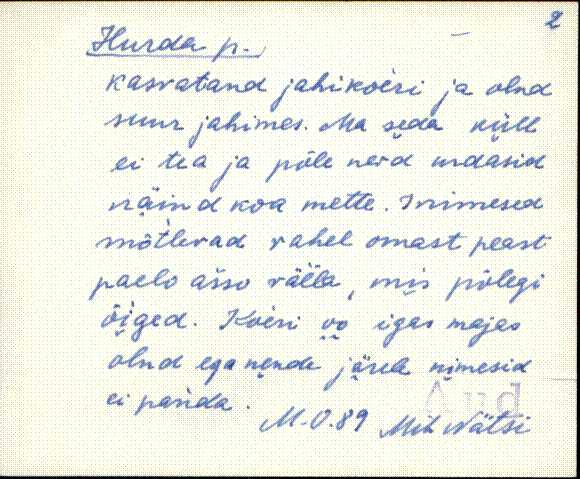 2
Hurda p.
kasvatand jahikoèri ja olnd
suur jahimes. Ma seda küll
ei tea ja põle neid urdasid
näind koa mette. Inimesed
mõtlevad vahel omast peast
paelo asso vällä, mis põlegi
õiged. Koèri oo igas majas
olnd ega nende järele nimesid
ei pańda.
M.O. 89 Mih. Nätsi
Aud